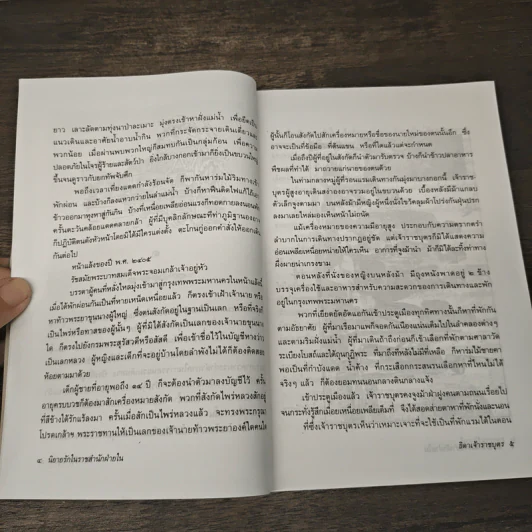 ยาว เลาะลัดตามทุ่งนาป่าละเมาะ มุ่งตรงเข้าหาฝั่งแม่น้ำ เพื่อยึดเป็น
แนวเดินและอาศัยน้ำอาบน้ำกิน พวกที่กระจัดกระจายเดินเดี่ยวและ
พวกน้อย เมื่อผ่านพบพวกใหญ่ก็สมทบกันเป็นกลุ่มก้อน เพื่อความ
ปลอดภัยในโจรผู้ร้ายและสัตว์ป่า ยิ่งใกล้บางกอกเข้ามาก็ยิ่งเป็นขบวนใหญ่
ขึ้นจนดูราวกับยกทัพจับศึก
พอถึงเวลาเที่ยงแดดกำลังร้อนจัด ก็พากันหาร่มไม้ริมทางเข้า
พักผ่อน และบ้างก็ลงแหวกว่ายในลำแม่น้ำ บ้างก็หาฟืนติดไฟแก้ไถ้
ข้าวออกมาหุงหาสู่กันกิน บ้างที่เหนื่อยเหลืออ่อนแรงก็ทอดกายลงนอน
ครั้นตะวันคล้อยแดดคลายกล้า ผู้ที่มีบุคลิกลักษณะที่ท่าภูมิฐานองอาจ
ก็ปฏิบัติตนดังหัวหน้าโดยมิได้มีใครแต่งตั้ง ตะโกนกู่ออกคำสั่งให้ออกเดิน
กันต่อไป
หน้าแล้งของปี พ.ศ. ๒๔๐๕
รัชสมัยพระบาทสมเด็จพระจอมเกล้าเจ้าอยู่หัว
บรรดาผู้คนที่หลั่งไหลมุ่งเข้ามาสู่กรุงเทพพระมหานครในหน้าแล้งนี้
เมื่อได้พักผ่อนกันเป็นที่หายเหน็ดเหนื่อยแล้ว ก็ตรงเข้าเฝ้าเจ้านาย หรือ
หาท้าวพระยาขุนนางผู้ใหญ่ ซึ่งตนสังกัดอยู่ในฐานะเป็นเลก หรือที่จริงก็
เป็นไพร่หรือทาสของผู้นั้นๆ ผู้ที่มิได้สังกัดเป็นเลกของเจ้านายขุนนาง
ใด ก็ตรงไปยังกรมพระสุรัสวดีหรือสัสดี เพื่อเข้าชื่อไว้ในบัญชีหางว่าว
เป็นเลกหลวง ผู้หญิงและเด็กที่จะอยู่บ้านโดยลำพังไม่ได้ก็ต้องติดสอย
ห้อยตามมาด้วย
เด็กผู้ชายที่อายุพอถึง ๑๙ ปี ก็จะต้องนำตัวมาลงบัญชีไว้ ครั้น
อายุครบบวชก็ต้องมาสักเครื่องหมายสังกัด พวกที่สังกัดไพร่หลวงสักอยู่
ที่สี่ข้างได้รักแร้ลงมา ครั้นเมื่อสักเป็นไพร่หลวงแล้ว จะทรงพระกรุณา
โปรดเกล้าฯ พระราชทานให้เป็นเลกของเจ้านายท้าวพระยาองค์ใดคนใด
๔ นิยายรักในราชสำนักฝ่ายใน
ผู้นั้นก็โอนสังกัดไปสักเครื่องหมายหรือชื่อของนายใหม่ของตนนั้นอีก ซึ่ง
อาจจะเป็นที่ข้อมือ ที่ต้นแขน หรือที่ใดแล้วแต่จะกำหนด
เมื่อถึงปีผู้ที่อยู่ในสังกัดก็นำตัวมารับตรวจ บ้างก็นำข้าวปลาอาหาร
พืชผลที่ทำได้ มาถวายแก่นายของตนด้วย
ในท่ามกลางหมู่ผู้ที่รอนแรมเดินทางกันฝูงมาบางกอกนี้ เจ้าราช-
บุตรผู้สูงอายุเดินสง่าองอาจรวมอยู่ในขบวนด้วย เบื้องหลังมีผ้าแกลบ
ตัวเล็กจูงตามมา บนหลังม้ามีหญิงผู้หนึ่งขี่ไขว้คลุมผ้าโปร่งกันฝุ่นปรก
ลงมาเลยไหล่มองเห็นหน้าไม่ถนัด
แม้เครื่องหมายของความมีอายุสูง ประกอบกับความตรากตรำ
ลำบากในการเดินทางปรากฏอยู่ชัด แต่เจ้าราชบุตรก็มิได้แสดงความ
อ่อนเหลือเหนื่อยหน่ายให้ใครเห็น อาการที่จูงม้านำ ม้าก็มิได้ละทิ้งท่าทาง
ผึ่งผายน่าเกรงขาม
ตอนหลังที่นั่งของหญิงบนหลังม้า มีถุงหนังพาดอยู่ ๒ ข้าง
บรรจุเครื่องใช้และอาหารสำหรับความสะดวกของการเดินทางและพัก
อยู่ในกรุงเทพพระมหานคร
พวกที่เบียดยัดอัดแอกันเข้าประตูเมืองทุกทิศทางนั้นก็หาที่พักกัน
ตามอัธยาศัย ผู้ที่มาเรือมาแพก็จอดกันเนืองแน่นเต็มไปในลำคลองต่างๆ
และตามริมฝั่งแม่น้ำ ผู้ที่มาเดินเท้าถึงก่อนก็เข้าเลือกที่พักตามศาลาวัด
ระเบียงโบสถ์และใต้ถุนกุฏิพระ ที่มาถึงทีหลังไม่มีที่เหลือ ก็หาร่มไม้ชายคา
พอเป็นที่กำบังแดด น้ำค้าง ที่กระเลือกกระสนเลือกหาที่ไหนไม่ได้
จริงๆ แล้ว ก็ต้องยอมทนนอนกลางดินกลางแจ้ง
เข้าประตูเมืองแล้ว เจ้าราชบุตรคงจูงม้าฝ่าฝูงคนตามถนนเรื่อยไป
จนกระทั่งรู้สึกเมื่อยเหนื่อยเหลือเต็มที่ จึงได้สอดส่ายตาหาที่พักนั่งและนอน
ที่ซึ่งเจ้าราชบุตรเห็นว่าเหมาะเจาะที่จะใช้เป็นที่พักแรมได้ในตอน
ธิดาเจ้าราชบุตร ๕